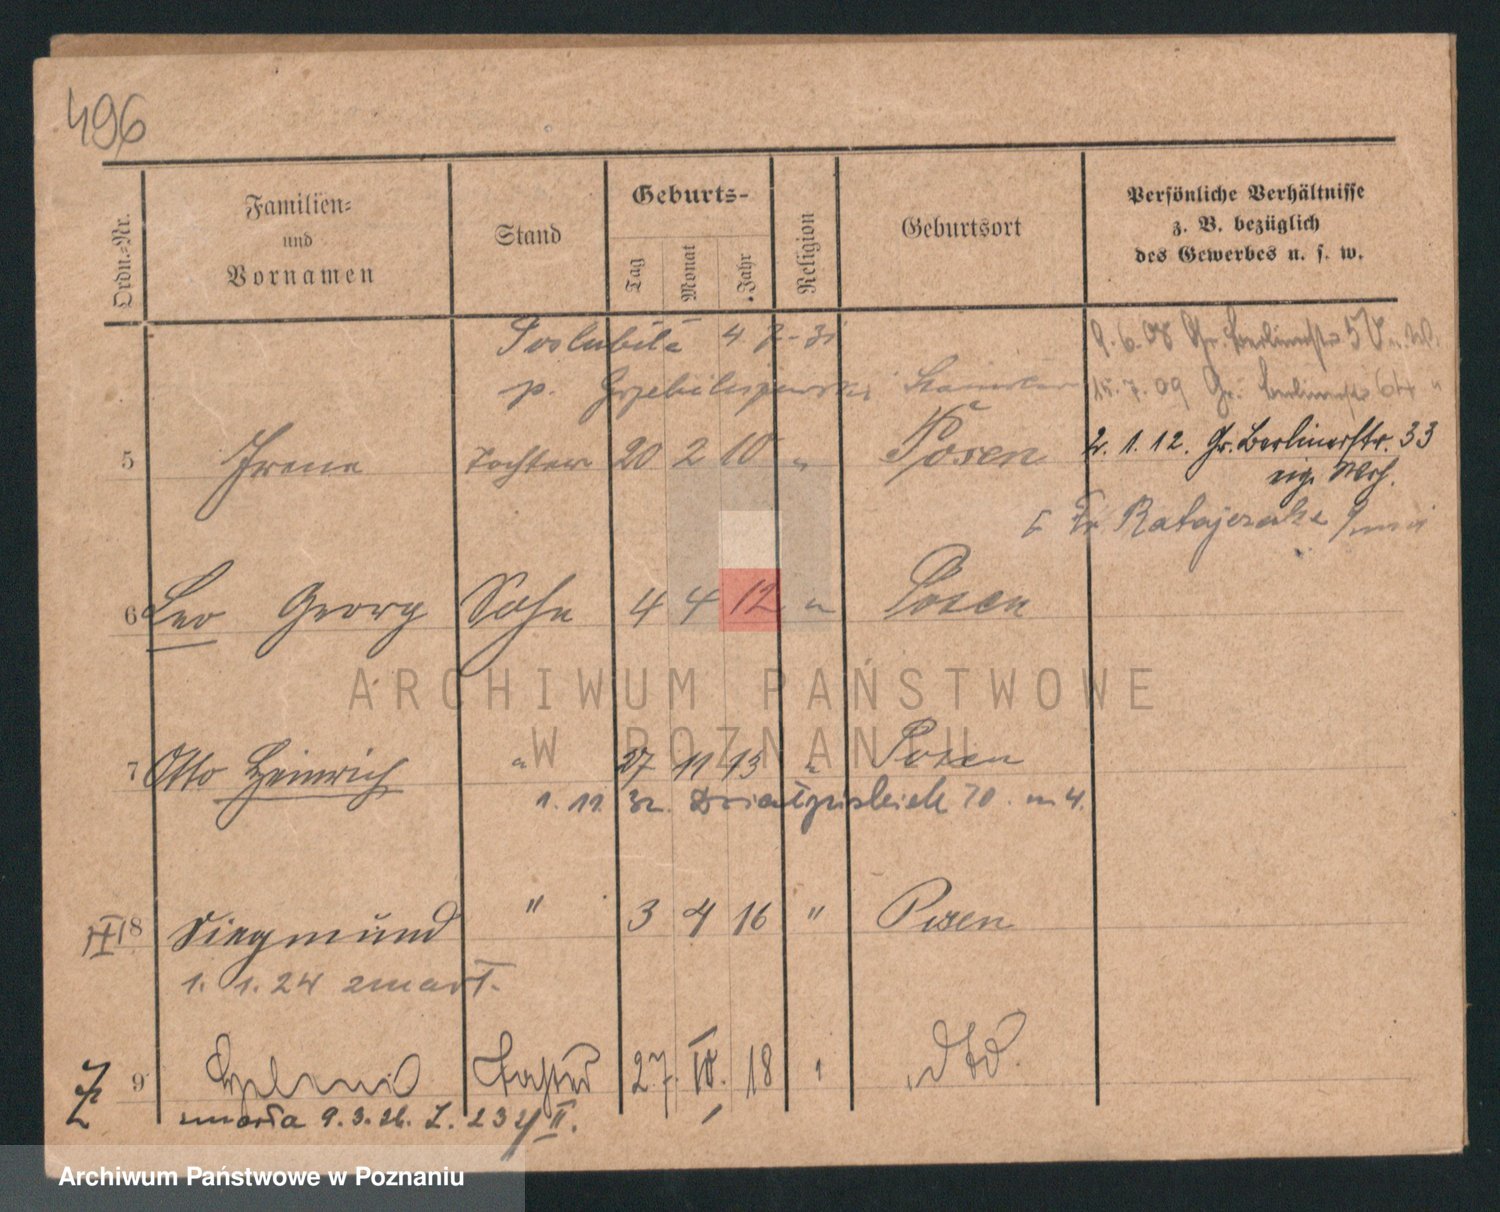 496
Ordn.-Nr.
Familien-
und
Vornamen
Stand
Geburts-
Tag
Monat
Jahr
Religion
Geburtsort
Persönliche Verhältnisse
z. B. bezüglich
des Gewerbes u. s. w.
Poslubiła 4 7 - 31
9. 6. 08 Gr. Berlinerstr.
p.
15. 7. 09 Gr. Berlinerstr.
5 Irene Tochter 20 2 10 " Posen 2. 1. 12. Gr. Berlinerstr. 33
eig. Whg.
Fr. Ratajczaka
6 Leo Georg Sohn 4 4 12 " Posen
ARCHIWUM PAŃSTWOWE
W POZNANIU
7 Otto Heinrich " 27 11 13 " Posen
1. 11. 32. Działyńskich 10. m 4.
8 Siegmund " 3 4 16 " Posen
1. 1. 24 zmarł.
9 Tochter 27. IV. 18 " dto.
zmarła 9. 3. 26. Z. 234 II.
Archiwum Państwowe w Poznaniu